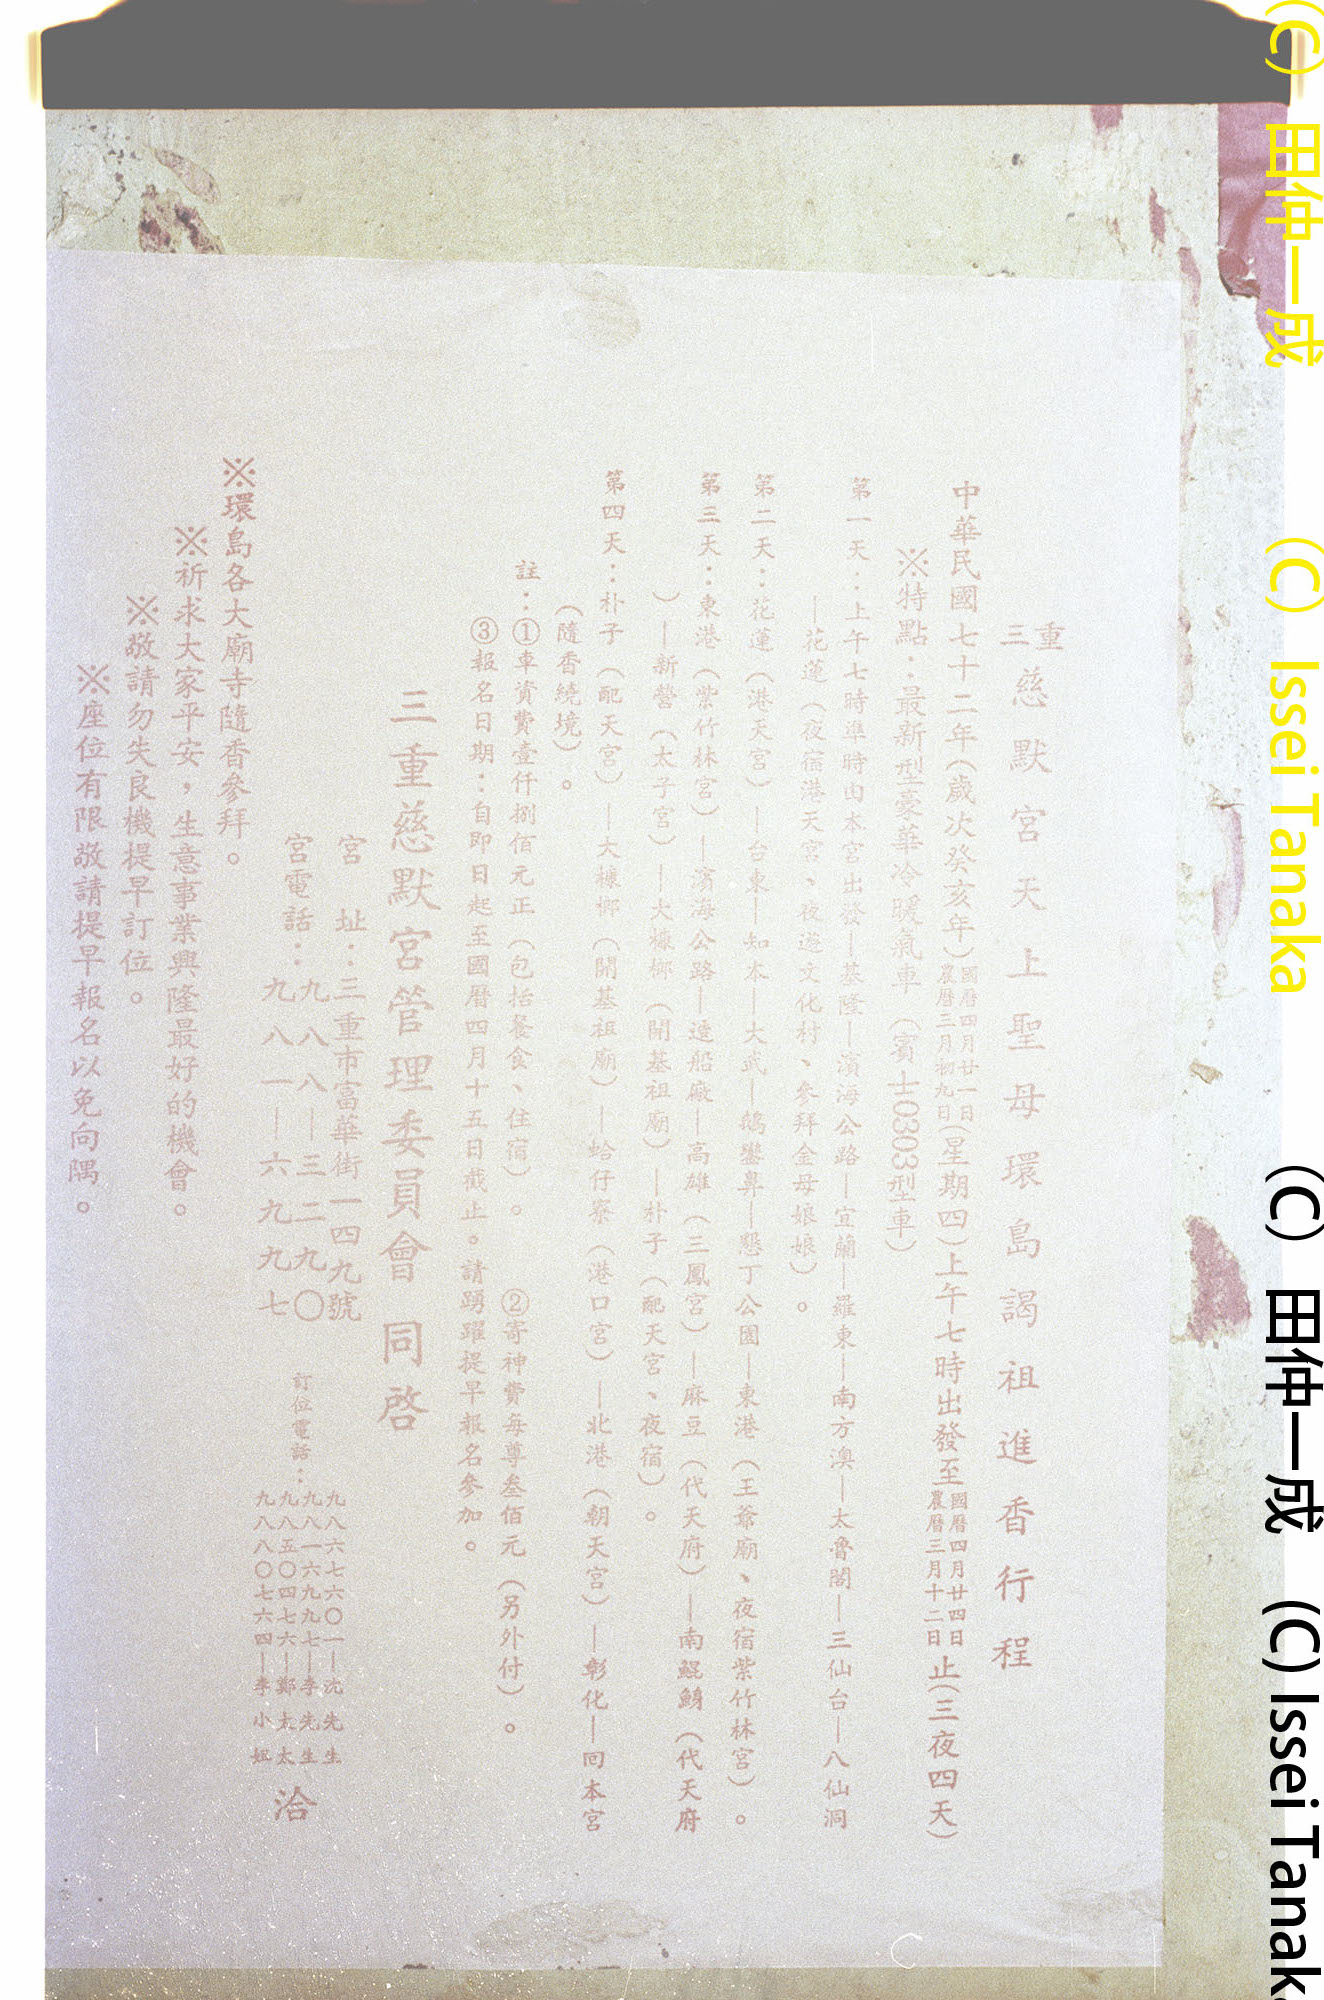 三重慈默宮天上聖母環島謁祖進香行程
中華民國七十二年(歲次癸亥年)國曆四月廿一日農曆三月初九日(星期四)上午七時出發至國曆四月廿四日農曆三月十二日止(三夜四天)
※特點:最新型豪華冷暖氣車(賓士0303型車)
第一天:上午七時準時由本宮出發—基隆—濱海公路—宜蘭—羅東—南方澳—太魯閣—三仙台—八仙洞
—花蓮(夜宿港天宮、夜遊文化村、參拜金母娘娘)。
第二天:花蓮(港天宮)—台東—知本—大武—鵝鑾鼻—懇丁公園—東港(王爺廟、夜宿紫竹林宮)。
第三天:東港(紫竹林宮)—濱海公路—造船廠—高雄(三鳳宮)—麻豆(代天府)—南鯤鯓(代天府
)—新營(太子宮)—大槺榔(開基祖廟)—朴子(配天宮、夜宿)。
第四天:朴子(配天宮)—大槺榔(開基祖廟)—蛤仔寮(港口宮)—北港(朝天宮)—彰化—回本宮
(隨香繞境)。
註:①車資費壹仟捌佰元正(包括餐食、住宿)。 ②寄神費每尊叁佰元(另外付)。
③報名日期:自即日起至國曆四月十五日截止。請踴躍提早報名參加。
三重慈默宮管理委員會 同啓
宮 址:三重市富華街一四九號
宮電話:九八八—三二九〇
九八一—六九九七
訂位電話:
九八六七六〇一—沈先生
九八一六九九七—李先生
九八五〇四七六—鄭太太
九八八〇七六四—李小姐
洽
※環島各大廟寺隨香參拜。
※祈求大家平安,生意事業興隆最好的機會。
※敬請勿失良機提早訂位。
※座位有限敬請提早報名以免向隅。
(C) 田仲一成 (C) Issei Tanaka
(C) 田仲一成 (C) Issei Tanaka